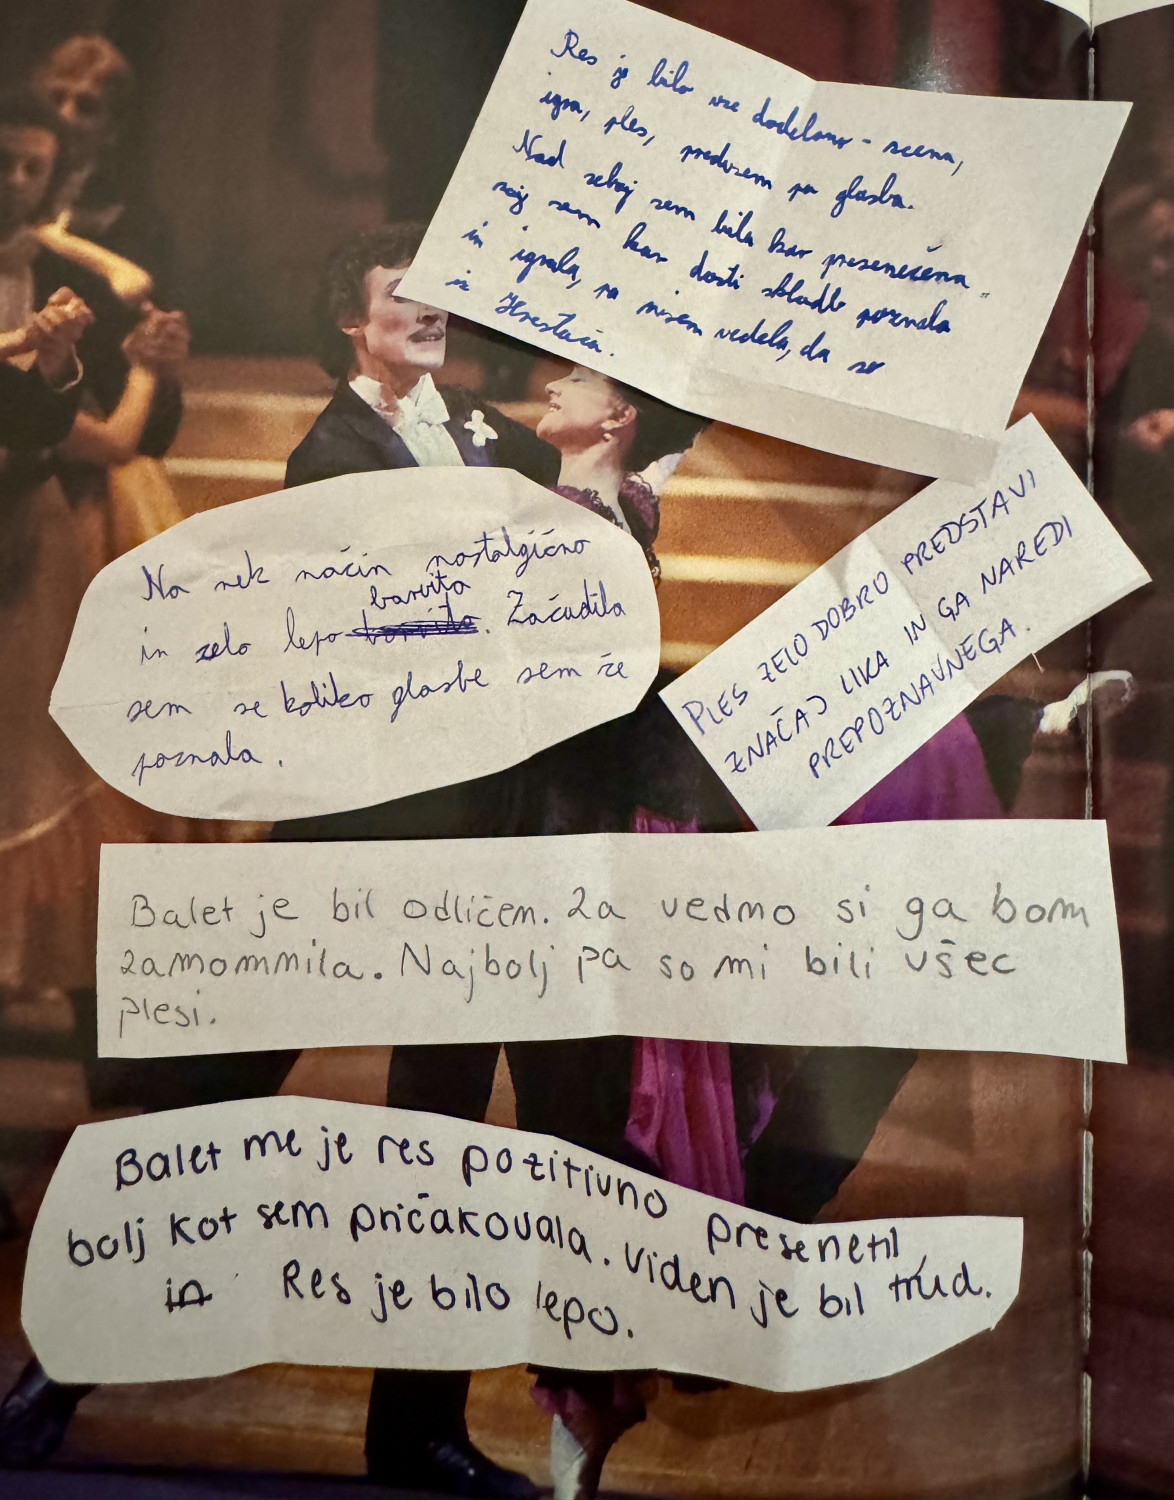 Res je bilo vse dodelano - scena,
igra, ples, predvsem pa glasba.
Nad seboj sem bila kar presenečena,
saj sem kar dosti skladb poznala
in igrala, pa nisem vedela, da so
iz Hrestača.
PLES ZELO DOBRO PREDSTAVI
ZNAČAJ LIKA IN GA NAREDI
PREPOZNAVNEGA.
Na nek način nostalgično
barvita
in zelo lepo. Začudila
sem se koliko glasbe sem že
poznala.
Balet je bil odličen. Za vedno si ga bom
zamomnila. Najbolj pa so mi bili všeč
plesi.
Balet me je res pozitivno presenetil,
bolj kot sem pričakovala. Viden je bil trud.
in Res je bilo lepo.